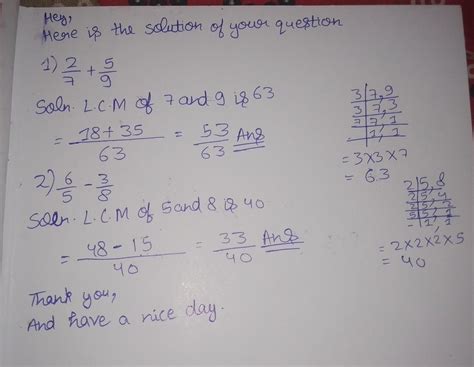 Hey,
Here is the solution of your question
1) 2/7 + 5/9
Soln. L.C.M of 7 and 9 is 63
= 18+35/63 = 53/63 Ans
2) 6/5 - 3/8
Soln. L.C.M of 5 and 8 is 40
= 48-15/40 = 33/40 Ans
Thank you,
And have a nice day.
3 | 7, 9
3 | 7, 3
7 | 7, 1
1, 1
= 3×3×7
= 63
2 | 5, 8
2 | 5, 4
2 | 5, 2
5 | 5, 1
- | 1, 1
= 2×2×2×5
= 40